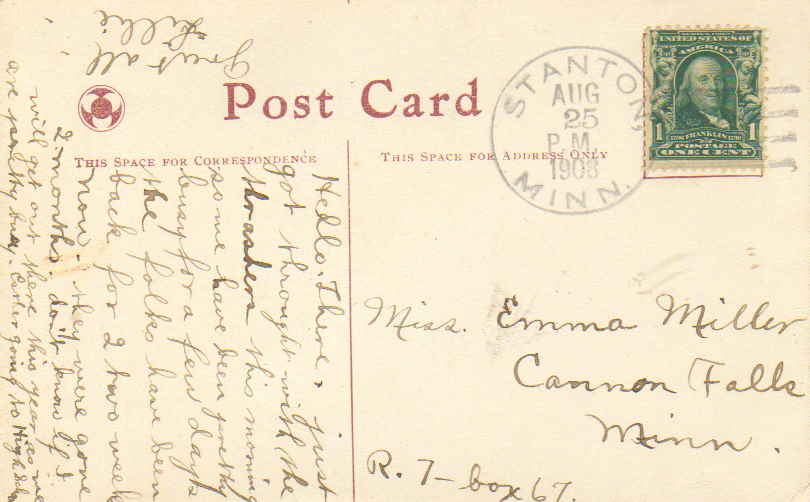 Post Card
THIS SPACE FOR CORRESPONDENCE
THIS SPACE FOR ADDRESS ONLY
STANTON,
AUG
25
P.M.
1908
MINN.
SERIES 1902
UNITED STATES OF
AMERICA
1 FRANKLIN 1
POSTAGE
ONE CENT
Miss. Emma Miller
Cannon Falls
Minn.
R. 7 - box 67.
Hello. There, just
got throught with the
thrashers this morning
some have been pretty
busy for a few days
the folks have been
back for 2 two weeks
now. they were gone
2 months. don't know if I
will get out there this year as we
are pretty busy. Carter going to High
Great all
Lillie